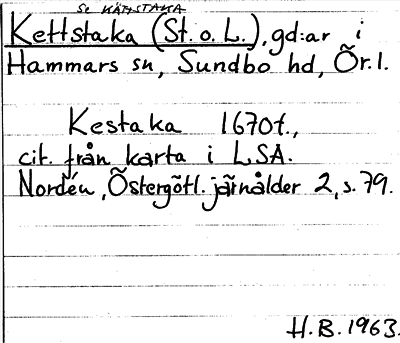 Se KÄTTSTAKA
Kettstaka (St. o. L.), gd:ar i
Hammars sn, Sundbo hd, Ör. l.
Kestaka 1670t.,
cit. från karta i LSA.
Nordén, Östergötl. järnålder 2, s. 79.
H.B. 1963.